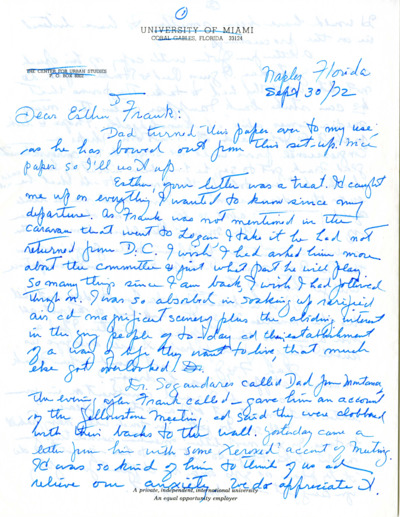 ①
UNIVERSITY OF MIAMI
CORAL GABLES, FLORIDA 33124
THE CENTER FOR URBAN STUDIES
P. O. BOX
Naples Florida
Sept 30/72
Dear Esther, Frank:
Dad turned this paper over to my use
as he has bowed out from this set-up. Nice
paper so I'll use it up.
Esther, your letter was a treat. It caught
me up on everything I wanted to know since my
departure. As Frank was not mentioned in the
caravan that went to Logan I take it he had not
returned from D.C. I wish I had asked him more
about the committee & just what part he will play.
So many things since I am back I wish I had
through on. I was so absorbed in soaking up rarified
air ad magnificent scenery plus the abiding interest
in the young people of to-day ad the establishment
of a way of life they want to live, that much
else got overlooked. Dr.
Dr. Sogandares called Dad from Montana
the evening after Frank called - gave him an account
on the Yellowstone Meeting ad said they were clobbered
with their backs to the wall. Yesterday came a
letter from him with some Xeroxed account of Meeting.
It was so kind of him to think of us ad
relieve our anxiety. We do appreciate it.
A private, independent, international university
An equal opportunity employer